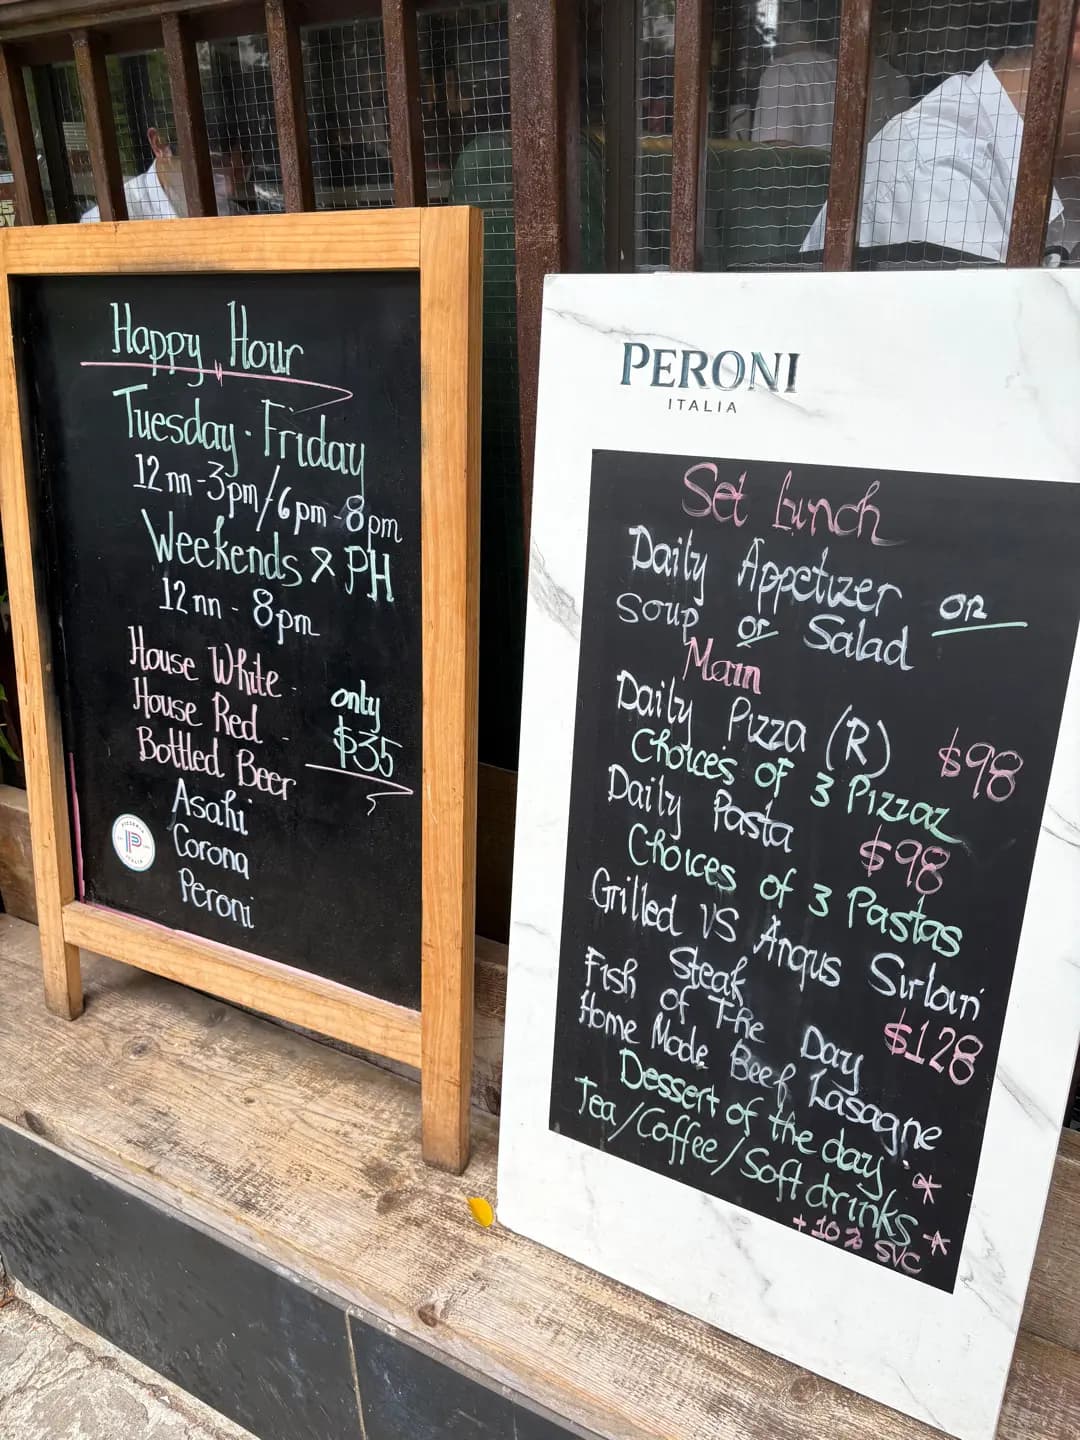 Happy Hour
Tuesday - Friday
12nn-3pm/6pm-8pm
Weekends & PH
12nn - 8pm
House White -
House Red -
Bottled Beer
only
$35
Asahi
Corona
Peroni
PIZZERIA
P
ITALIA
PERONI
ITALIA
Set Lunch
Daily Appetizer or
Soup or Salad
Main
Daily Pizza (R) $98
Choices of 3 Pizzaz
Daily Pasta $98
Choices of 3 Pastas
Grilled VS Angus Sirloin
Steak $128
Fish of The Day
Home Made Beef Lasagne
Dessert of the day *
Tea/Coffee/Soft drinks *
+ 10% SVC